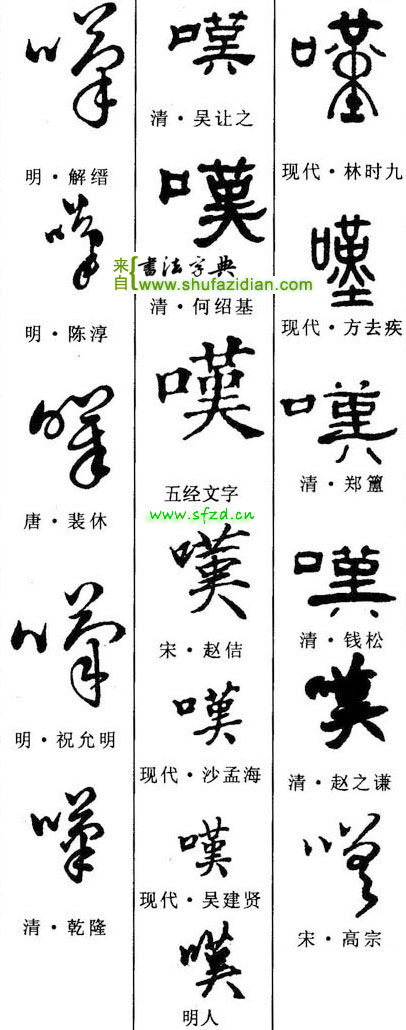 嘆
明·解缙
嘆
明·陈淳
嘆
唐·裴休
嘆
明·祝允明
嘆
清·乾隆
嘆
清·吴让之
嘆
来自
书法字典
www.shufazidian.com
清·何绍基
嘆
五经文字
www.sfzd.cn
嘆
宋·赵佶
嘆
现代·沙孟海
嘆
现代·吴建贤
嘆
明人
嘆
现代·林时九
嘆
现代·方去疾
嘆
清·郑簠
嘆
清·钱松
嘆
清·赵之谦
嘆
宋·高宗